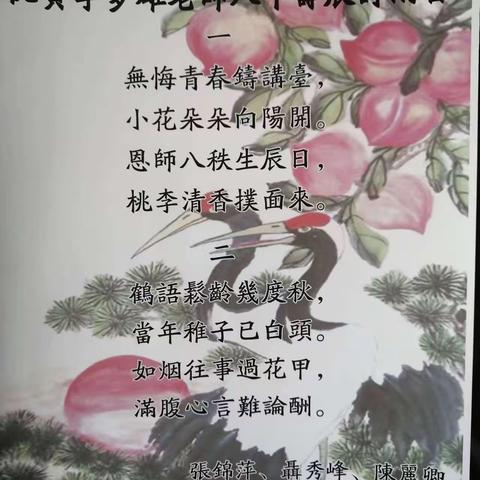 老師八十壽辰
一
無悔青春鑄講臺，
小花朵朵向陽開。
恩師八秩生辰日，
桃李清香撲面來。
二
鶴語鬆齡幾度秋，
當年稚子已白頭。
如烟往事過花甲，
滿腹心言難論酬。
張錦萍、聶秀峰、陳麗卿